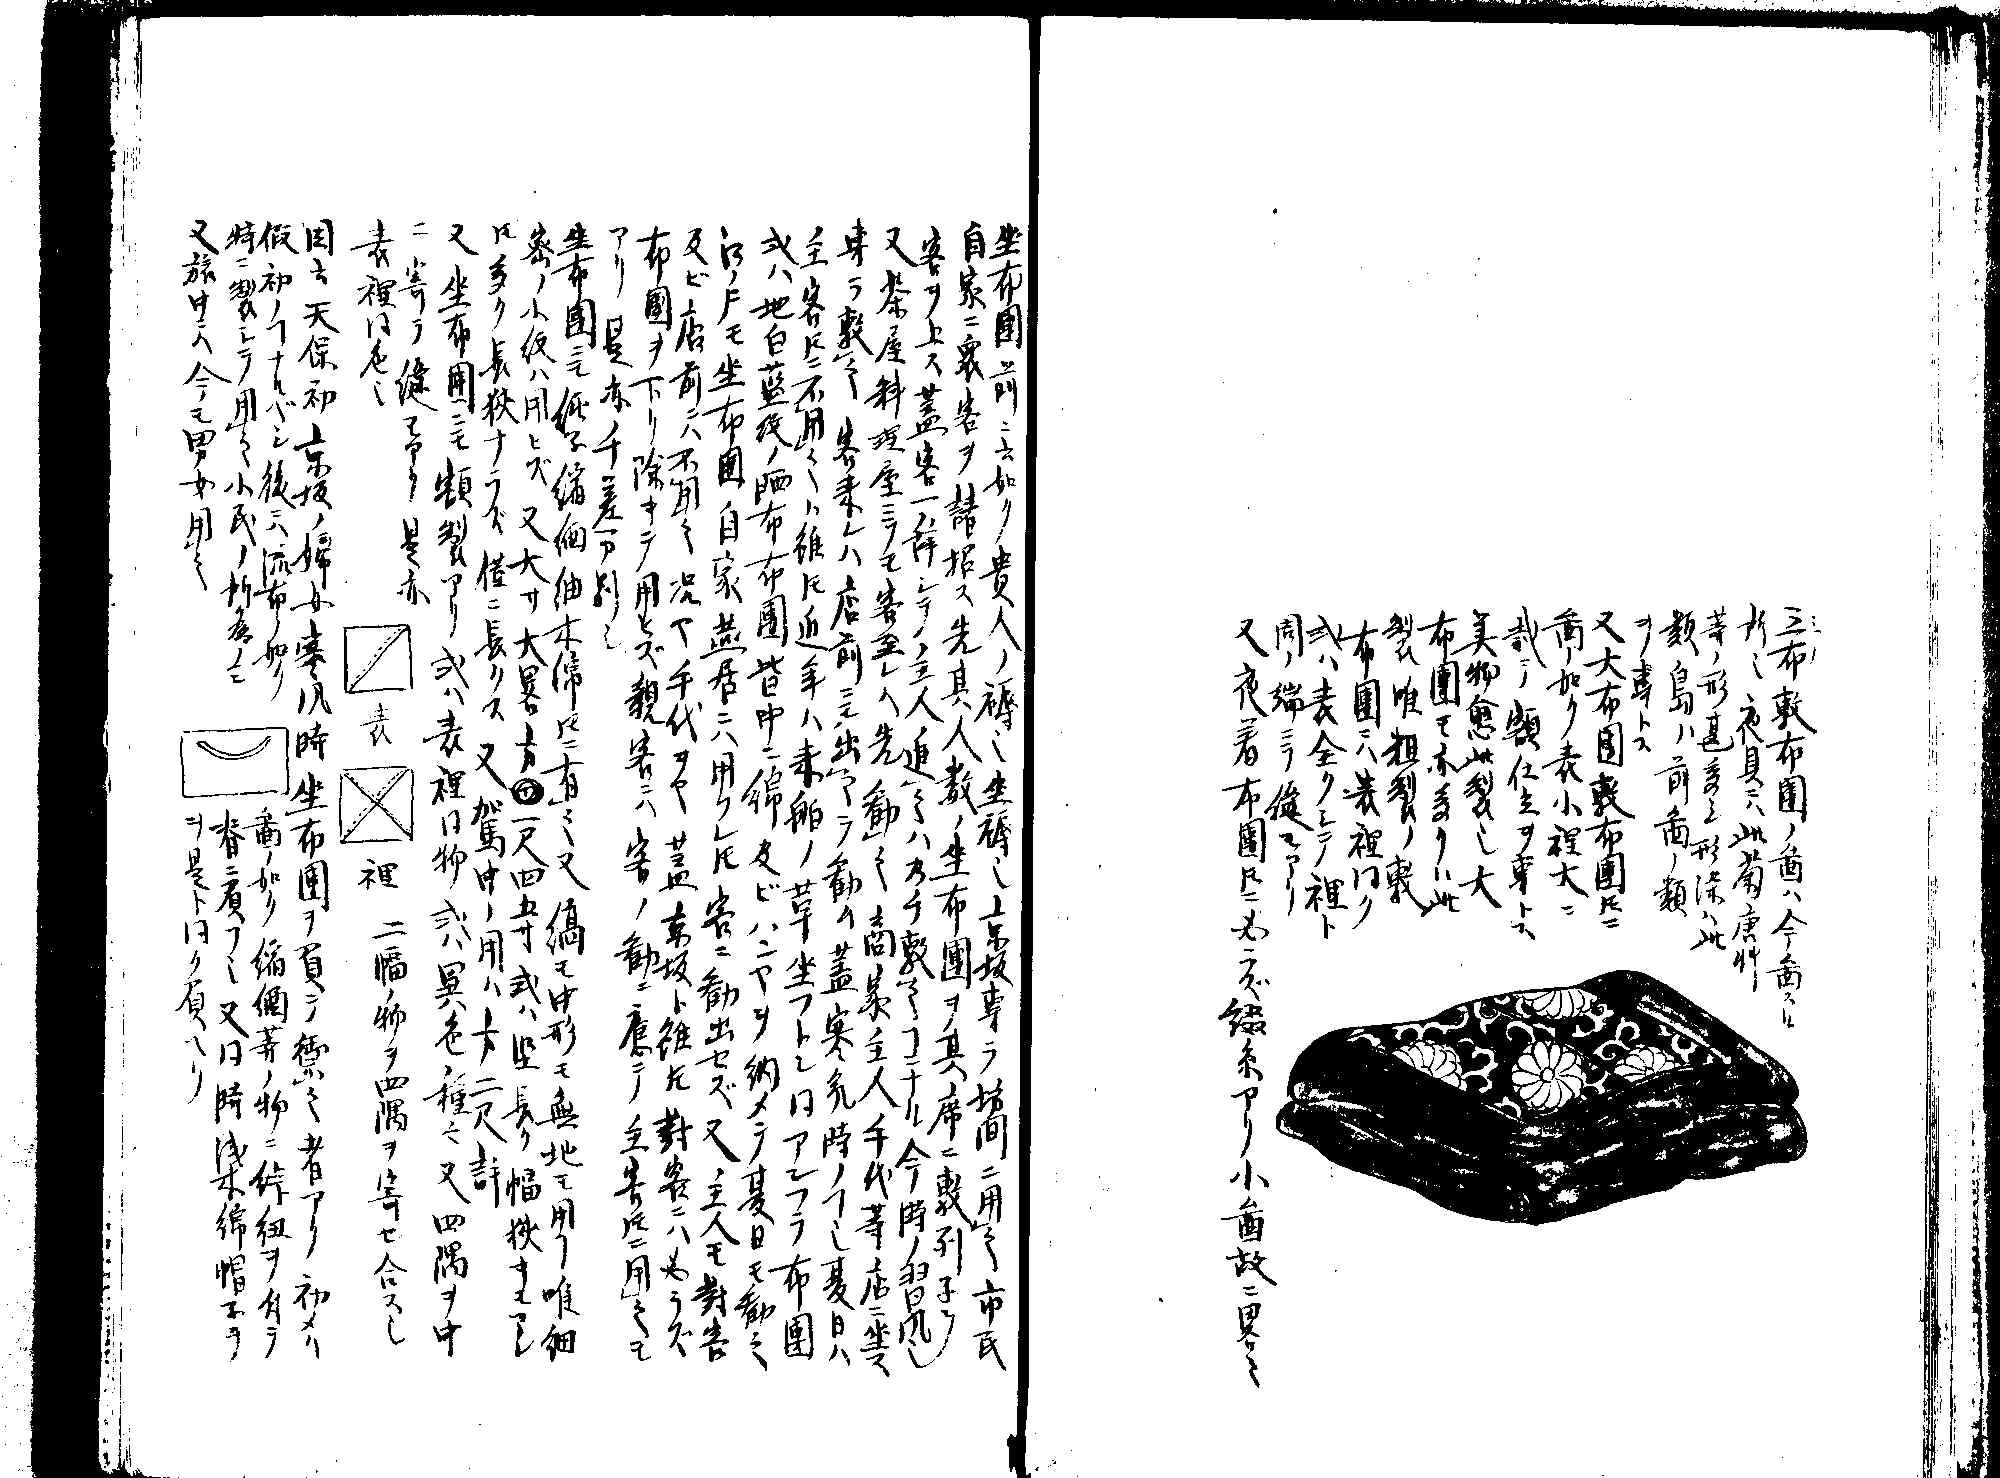 三布敷布團ノ圖ハ今圖スル
所也 夜具ニハ此菊唐艸
等ノ形甚多シ 形染ハ此
類 島ハ前圖ノ類
ヲ専トス
又大布團敷布團トモニ
圖ノ如ク表小裡大ニ
額仕立ヲ専トス
美物愈此製也 大
布團モ亦多クハ此
製 唯粗製ノ敷
布團ニハ表裡同ク
或ハ表全クシテ裡ト
周ノ端ニテ縫モアリ
又夜着布團トモニ必ラズ綴糸アリ 小圖故ニ畧之
坐布團 前ニ云如ク貴人ノ褥也 坐褥也 京坂専ラ坊間ニ用之 市民
自家ニ衆客ヲ請招ス 先其人数ノ坐布團ヲ其席ニ敷列子テ
客ヲ上ス 蓋客一ノ辞シテノ主人追之ハ乃チ敷之コトナル 今時ノ習風也
又茶屋料理屋ニテモ客至レハ先勧之 商家主人手代等店ニ坐ス
専ラ敷之 客来レハ店前ニモ出之テ勧ム 蓋寒気時ノコト也 夏日ハ
主客トモニ不用之ト雖トモ近年ハ来舶ノ草坐フトン 同アンフラ布團
或ハ地白藍紋ノ晒布布團 皆中ニ綿及ビハンヤヲ納メテ夏日モ勧之
江ノ戸モ坐布團自家燕居ニハ用フレトモ客ニ勧出セズ 又主人モ對客
及ビ店前ニハ不用之 況ヤ手代ヲヤ 蓋京坂ト雖トモ對客ニハ必ラズ
布團ヲ下リ除キテ用ヒズ 親客ニハ客ノ勧ニ應テ主客トモニ用之モ
アリ 是亦ノ千差万別也
坐布團ニモ純子縮緬紬木綿トモニ有之 又縞モ中形モ無地モ用フ 唯細
密ノ小紋ハ用ヒズ 又大サ大畧方一尺四五寸 或ハ竪長ク幅狭キモアレ
トモ多ク長狭ナラズ 僅ニ長クス 又駕中ノ用ハ方二尺許
又坐布團ニモ額製アリ 或ハ表裡同物 或ハ異色ノ種々 又四隅ヲ中
ニ寄テ縫モアリ 是亦
表裡同色也
表
裡
二幅ノ物ヲ四隅ヲ寄セ合ス也
因云 天保初 京坂ノ婦女寒風時坐布團ヲ負テ禦之者アリ 初メハ
假初ノコトナルベシ 後ニハ流布ノ如ク 圖ノ如ク縮緬等ノ物ニ紐ヲ付テ
特ニ製シテ用之 小民ノ所為也 脊ニ負フ也 又同時浅木綿帽子ヲ
又旅中ニハ今モ男女用之
ヲ是ト同ク負ヘリ